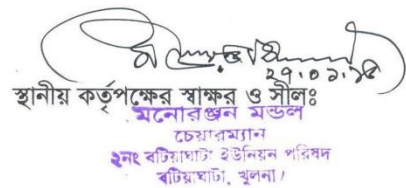 ২৭.০১.১৫
স্থানীয় কর্তৃপক্ষের স্বাক্ষর ও সীলঃ
মনোরঞ্জন মন্ডল
চেয়ারম্যান
২নং বটিয়াঘাটা ইউনিয়ন পরিষদ
বটিয়াঘাটা, খুলনা।